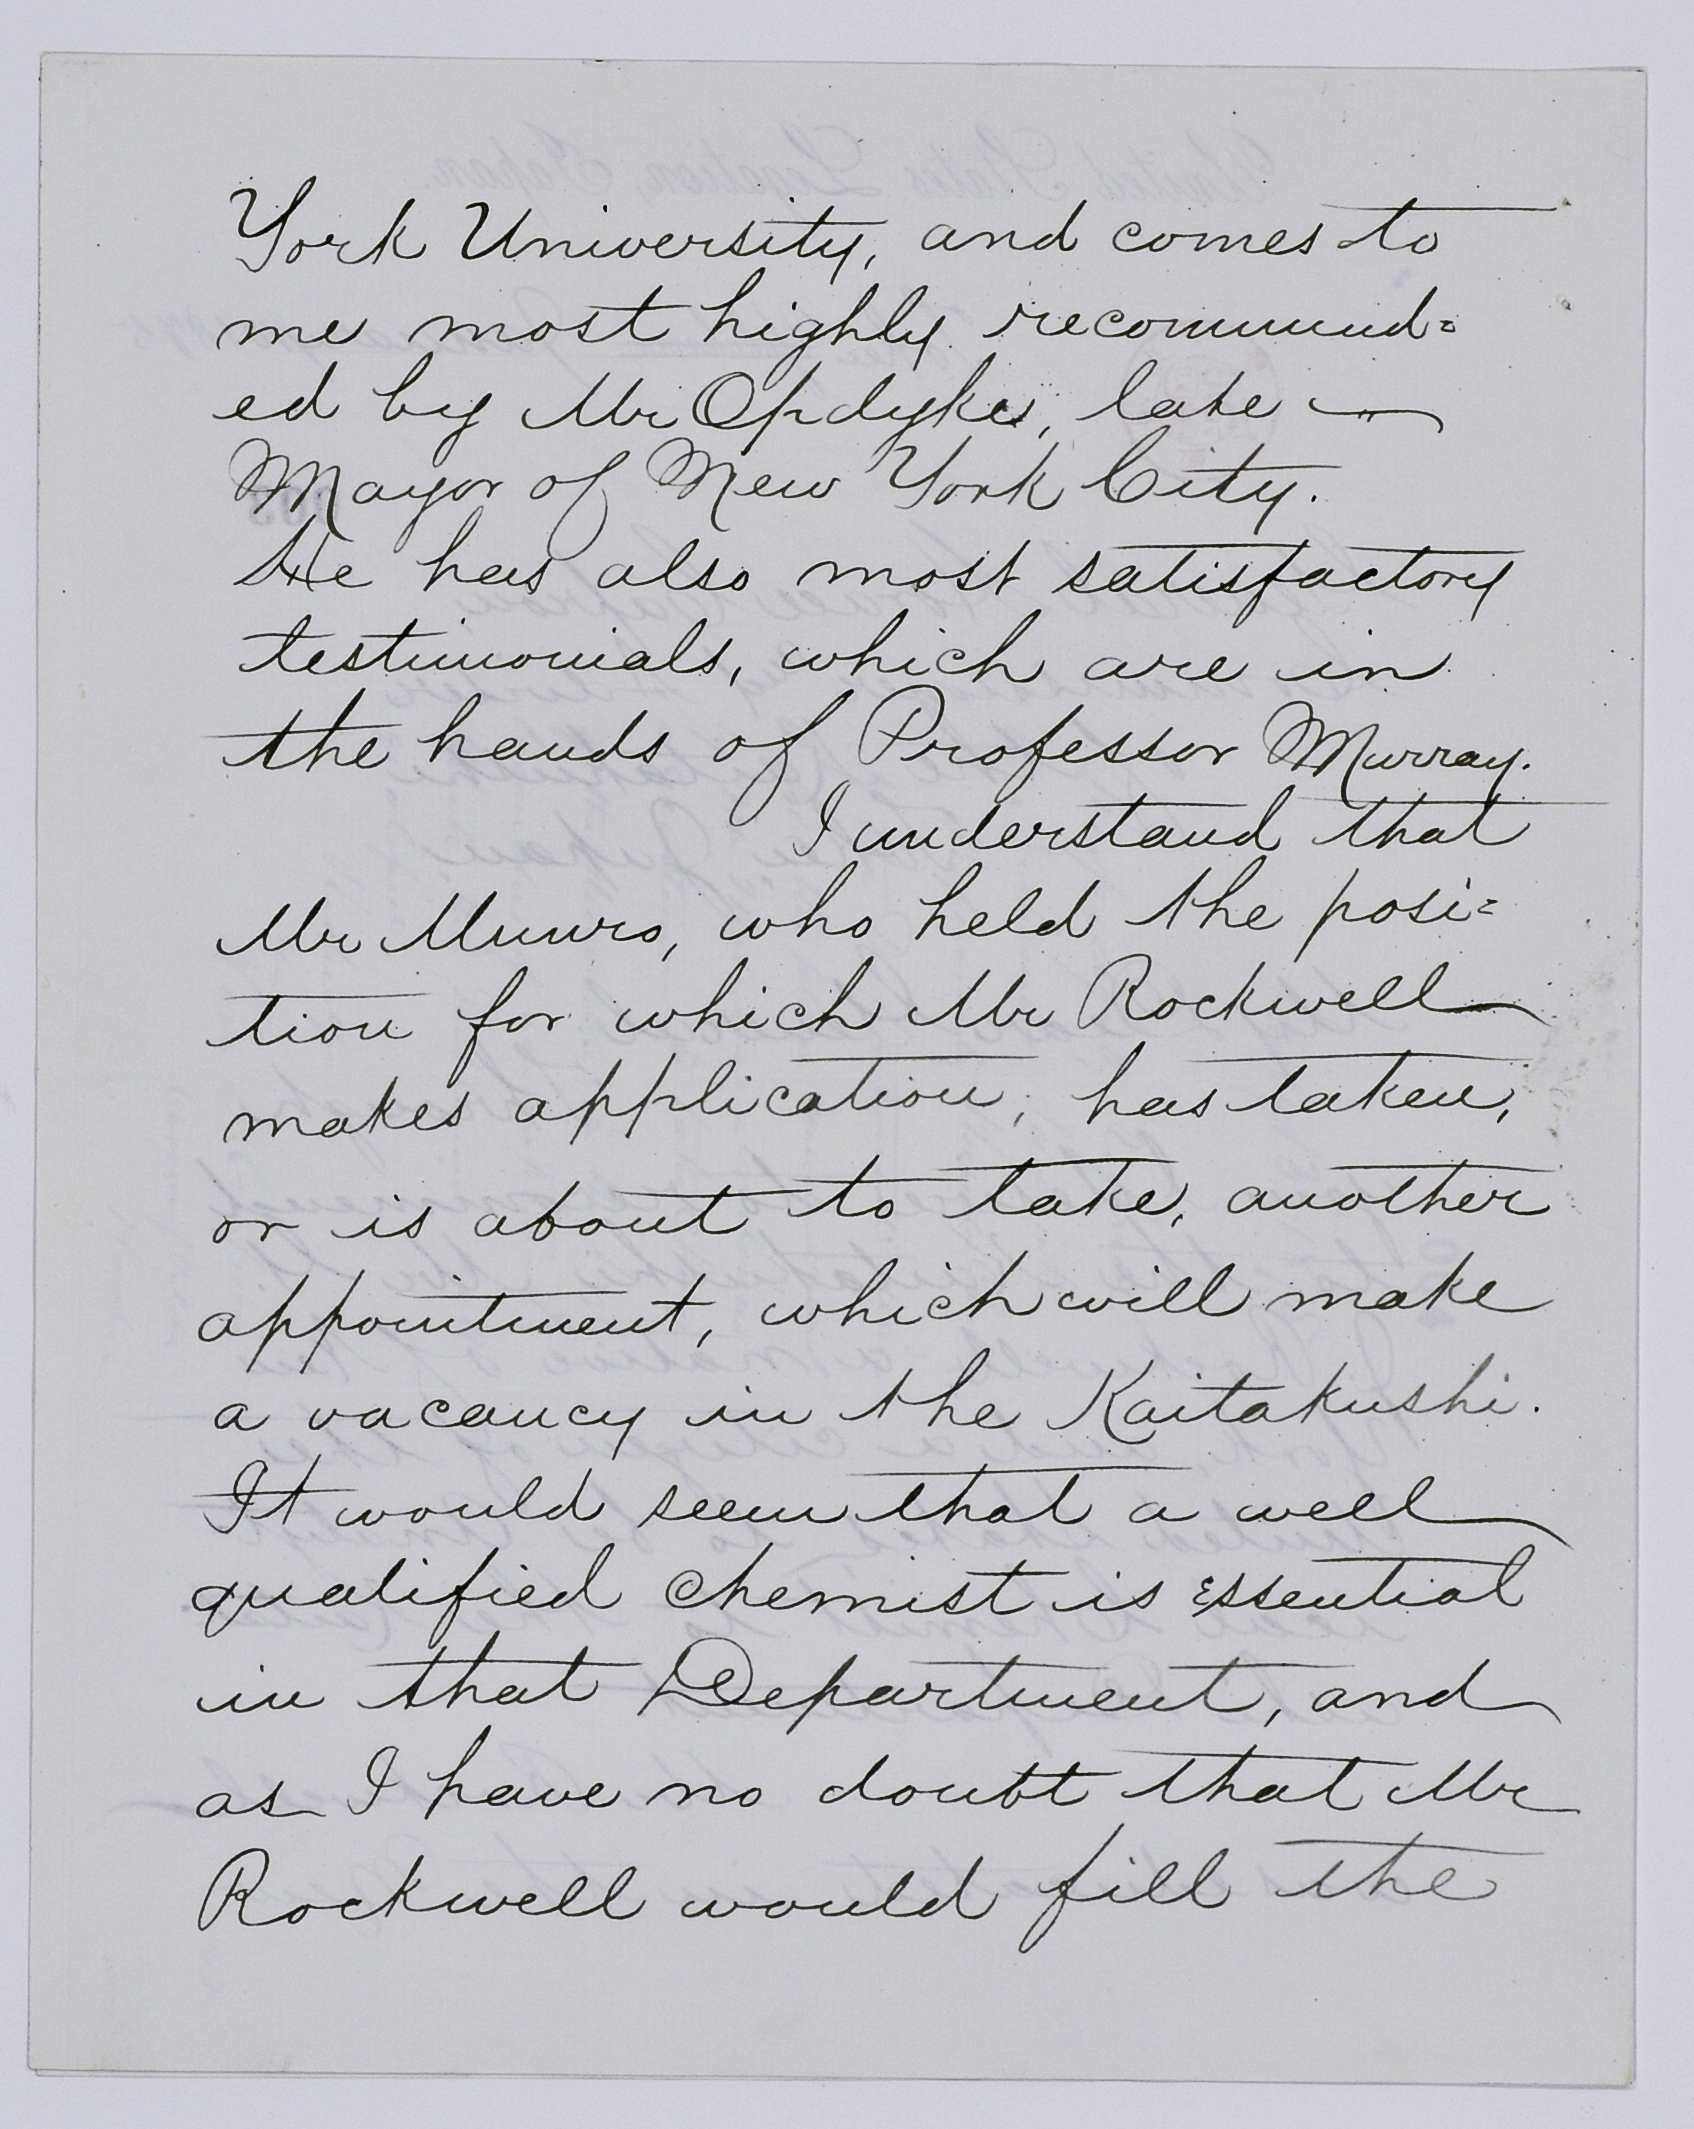 York University, and comes to
me most highly recommend=
ed by Mr Opdyke, late
Mayor of New York City.
He has also most satisfactory
testimonials, which are in
the hands of Professor Murray.
I understand that
Mr Munro, who held the posi=
tion for which Mr Rockwell
makes application, has taken,
or is about to take, another
appointment, which will make
a vacancy in the Kaitakushi.
It would seem that a well
qualified chemist is essential
in that Department, and
as I have no doubt that Mr
Rockwell would fill the